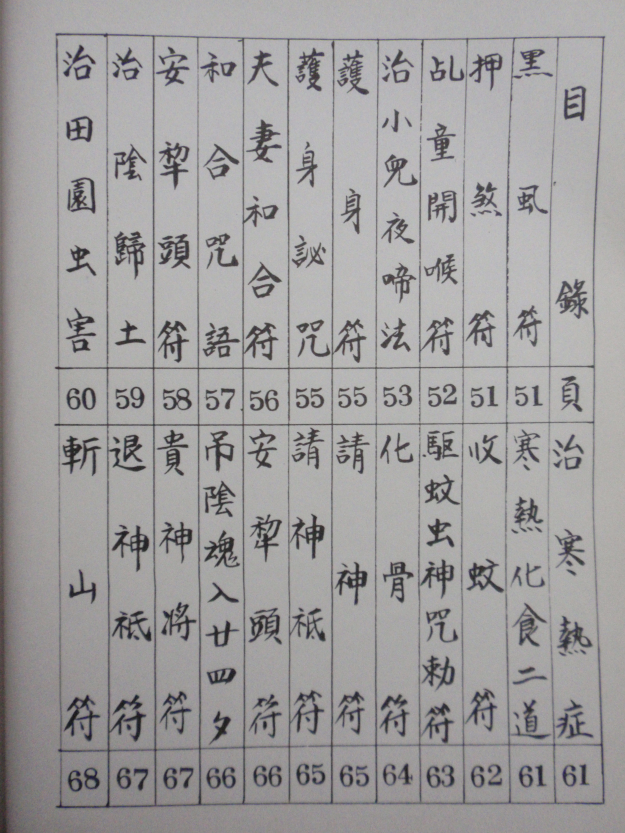 目錄 頁
黑虱符 51
押煞符 51
乩童開喉符 52
治小兒夜啼法 53
護身符 55
護身䛑咒 55
夫妻和合符 56
和合咒語 57
安犂頭符 58
治陰歸土 59
治田園虫害 60
治寒熱症 61
寒熱化食二道 61
收蚊符 62
驅蚊虫神咒勅符 63
化骨符 64
請神符 65
請神祗符 65
安犂頭符 66
吊陰魂入廿四夕 66
貴神将符 67
退神祗符 67
斬山符 68